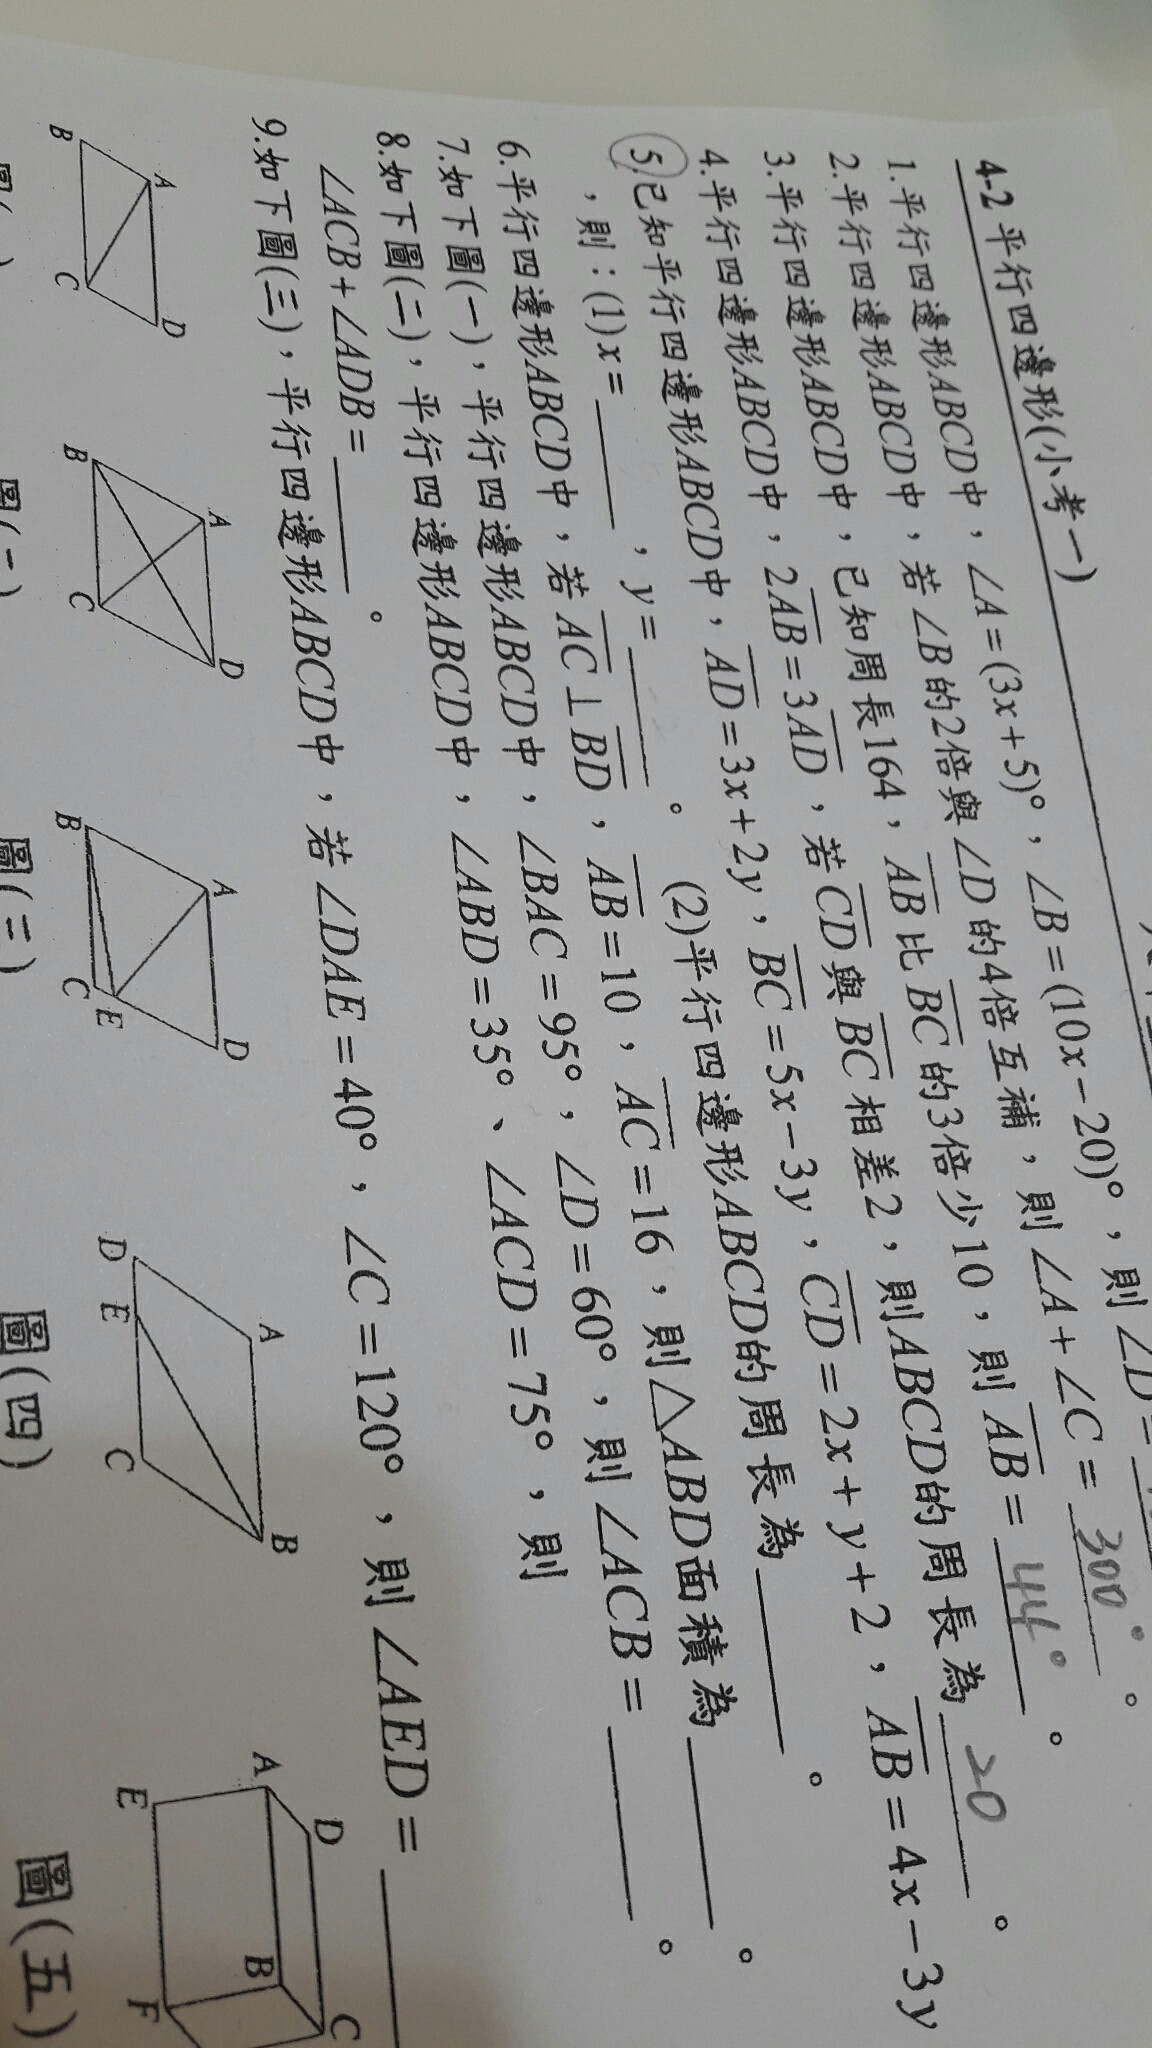 4-2平行四邊形(小考一)
1.平行四邊形ABCD中，∠A=(3x+5)°，∠B=(10x-20)°，則∠D=
2.平行四邊形ABCD中，若∠B的2倍與∠D的4倍互補，則∠A+∠C=300°。
3.平行四邊形ABCD中，已知周長164，AB比BC的3倍少10，則AB=44°。
4.平行四邊形ABCD中，2AB=3AD，若CD與BC相差2，則ABCD的周長為20。
5.已知平行四邊形ABCD中，AD=3x+2y，BC=5x-3y，CD=2x+y+2，AB=4x-3y
，則：(1)x=____，y=____。 (2)平行四邊形ABCD的周長為____。
6.平行四邊形ABCD中，若AC⊥BD，AB=10，AC=16，則△ABD面積為____。
7.如下圖(一)，平行四邊形ABCD中，∠BAC=95°，∠D=60°，則∠ACB=____。
8.如下圖(二)，平行四邊形ABCD中，∠ABD=35°、∠ACD=75°，則
∠ACB+∠ADB=____。
9.如下圖(三)，平行四邊形ABCD中，若∠DAE=40°，∠C=120°，則∠AED=____
A D B C
A D B C
A D B C E
A B D E C
A D B C E F
圖(二) 圖(三) 圖(四) 圖(五)